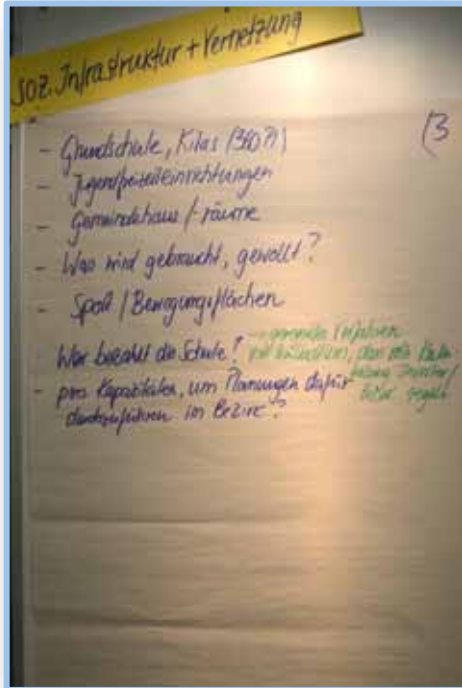 soz. Infrastruktur + Vernetzung
(3
- Grundschule, Kitas (360?!)
- Jugendfreizeiteinrichtungen
- Gemeindehaus / -räume
- Was wird gebraucht, gewollt?
- Sport / Bewegungsflächen
Wer bezahlt die Schule?
- pers. Kapazitäten, um Planungen dafür
durchzuführen im Bezirk?